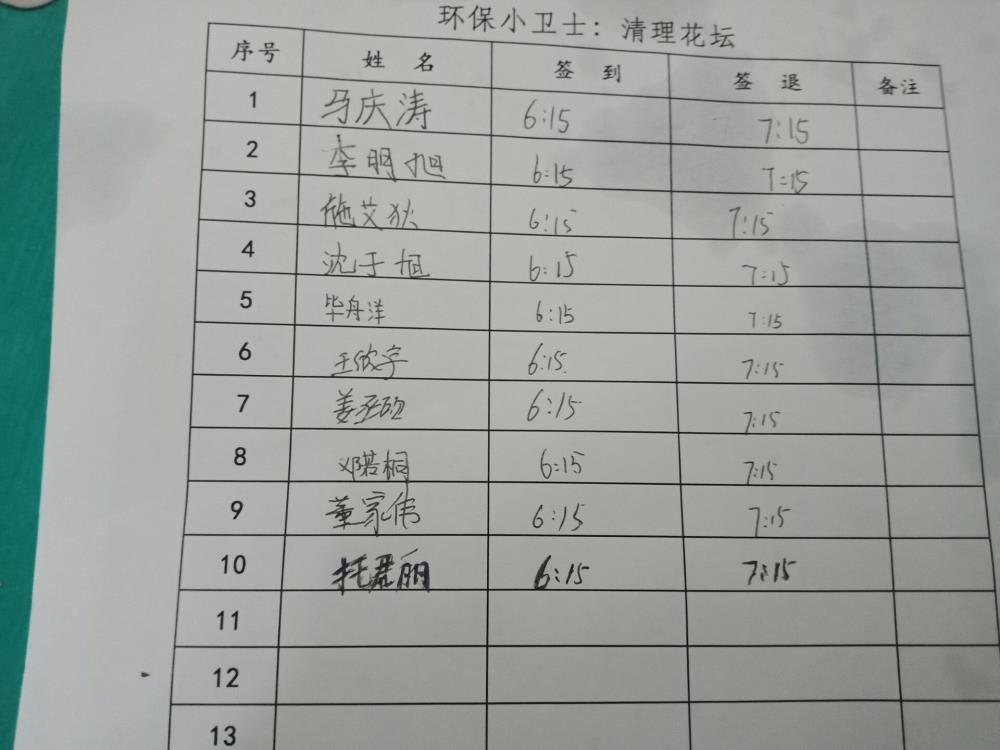 环保小卫士：清理花坛
序号 姓 名 签 到 签 退 备注
1 马庆涛 6:15 7:15
2 李明旭 6:15 7:15
3 施艾狄 6:15 7:15
4 沈于旭 6:15 7:15
5 毕舟洋 6:15 7:15
6 王欣宇 6:15 7:15
7 6:15 7:15
8 邓若桐 6:15 7:15
9 董家伟 6:15 7:15
10 托君丽 6:15 7:15
11
12
13